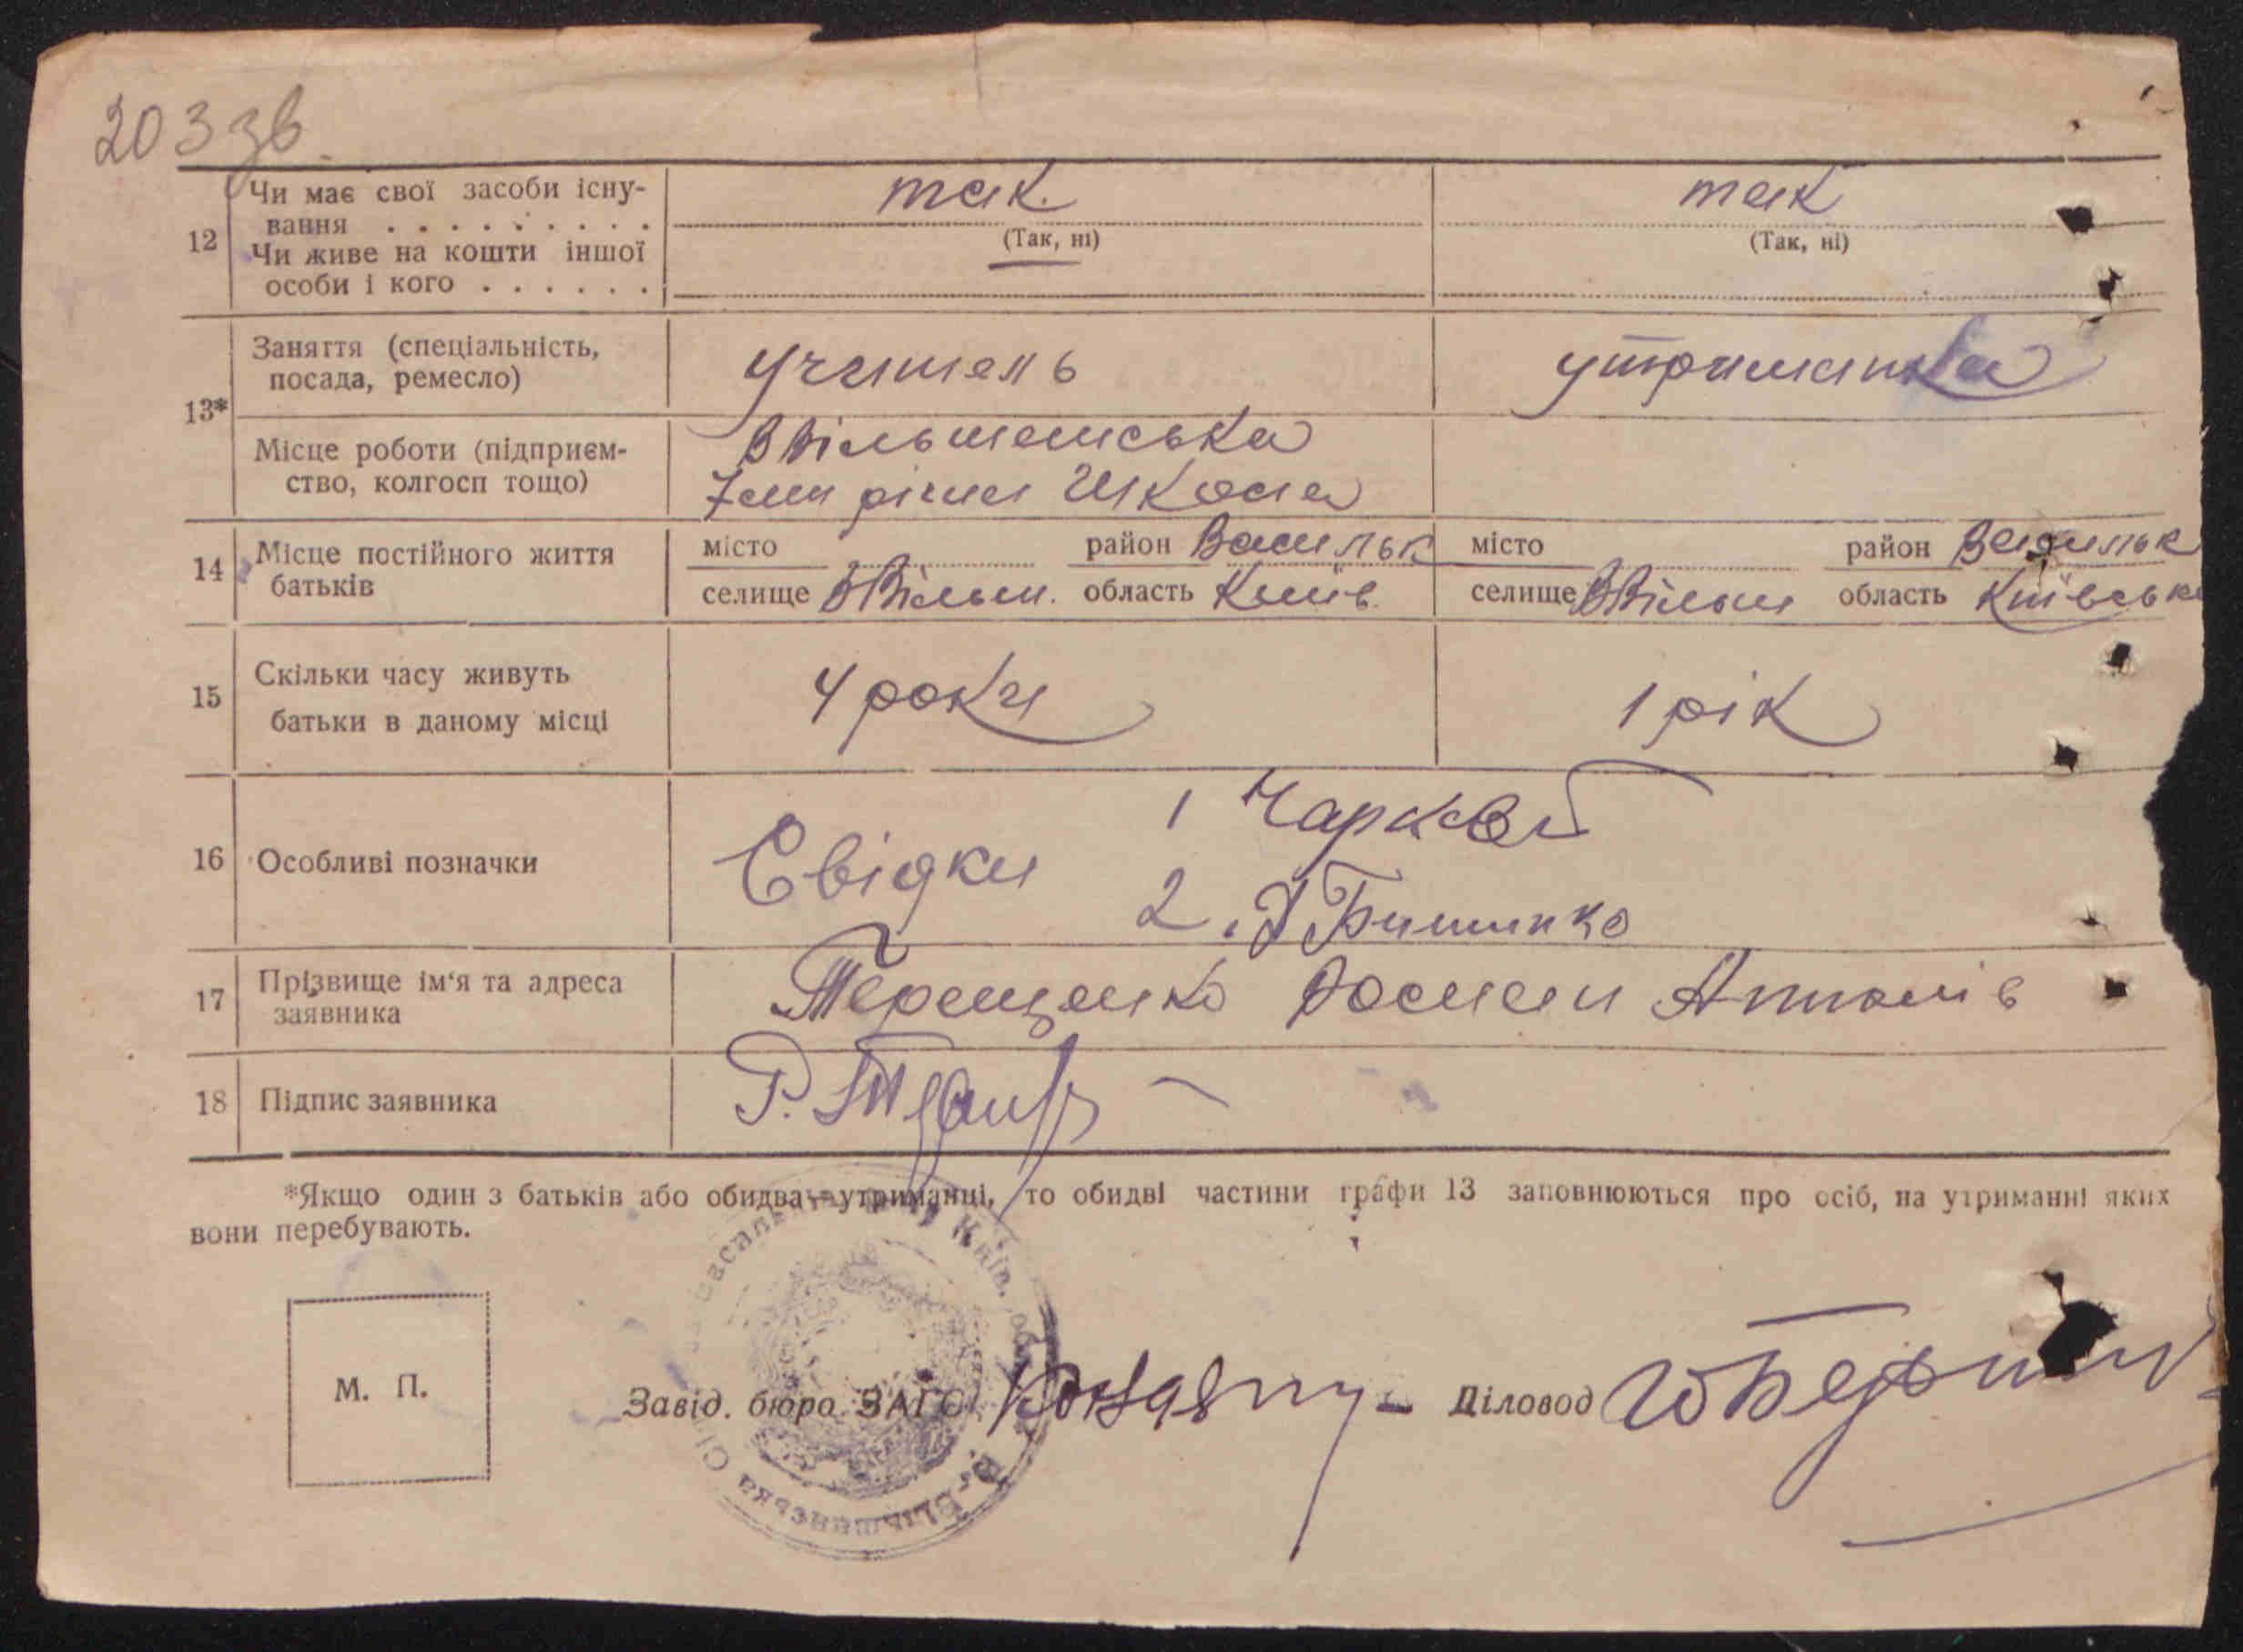 203 зв.
12
Чи має свої засоби існу-
вання . . . . . . . . .
Чи живе на кошти іншої
особи і кого . . . . . .
так.
(Так, ні)
так
(Так, ні)
13*
Заняття (спеціальність,
посада, ремесло)
учитель
утриманка
Місце роботи (підприєм-
ство, колгосп тощо)
ВВільшанська
7ми річна Школа
14
Місце постійного життя
батьків
місто район Васильк
селище ВВільш. область Київ.
місто район Васильк
селище ВВільш область Київська
15
Скільки часу живуть
батьки в даному місці
4 роки
1 рік
16
Особливі позначки
Свідки 1
2.
17
Прізвище ім'я та адреса
заявника
Терещенко Роман Антонів
18
Підпис заявника
Р.
*Якщо один з батьків або обидва — утриманці, то обидві частини графи 13 заповнюються про осіб, на утриманні яких
вони перебувають.
М. П.
Завід. бюро ЗАГС
Діловод